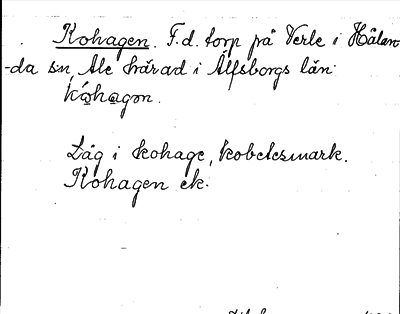 Kohagen. F.d. torp på Verle i Hålan-
-da sn, Ale härad i Älfsborgs län.
kóhagon.
Låg i kohage, kobetesmark.
Kohagen ek.